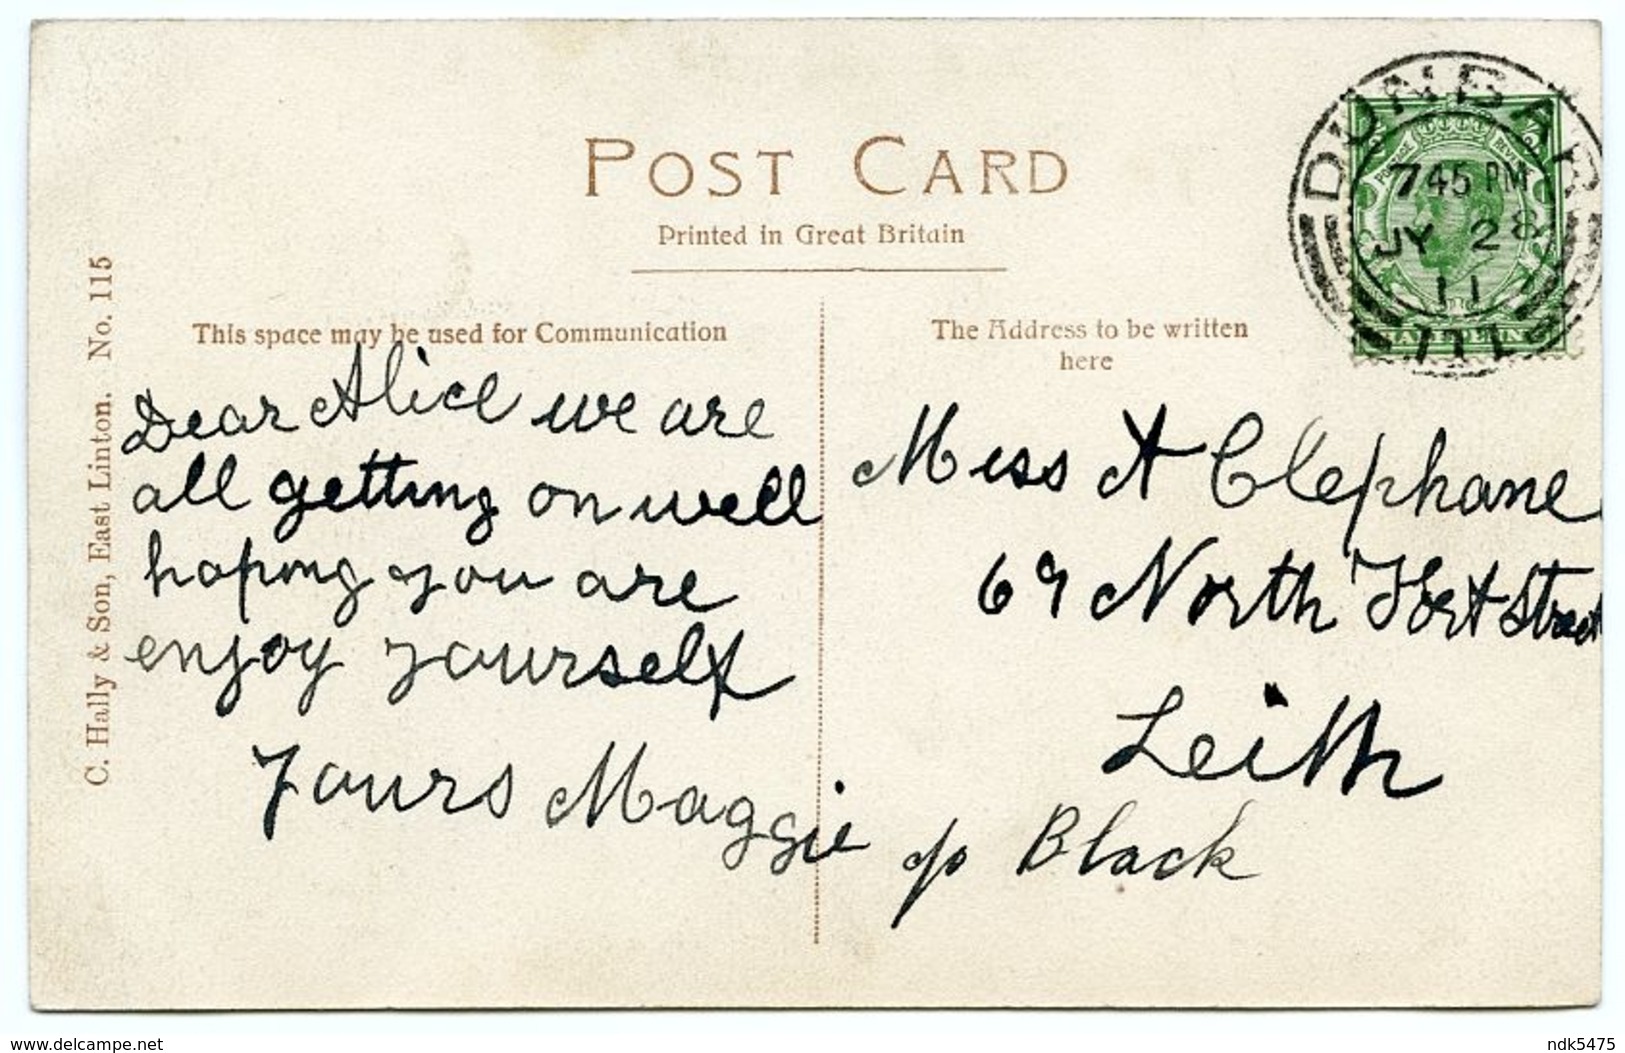 POST CARD
Printed in Great Britain
This space may be used for Communication
The Address to be written
here
C. Hally & Son, East Linton. No. 115
DUNBAR
7 45 PM
JY 28
11
171
Dear Alice we are
all getting on well
hoping you are
enjoy yourself
Yours Maggie
Miss A Clephane
69 North Fort Street
Leith
c/o Black
www.delcampe.net
ndk5475